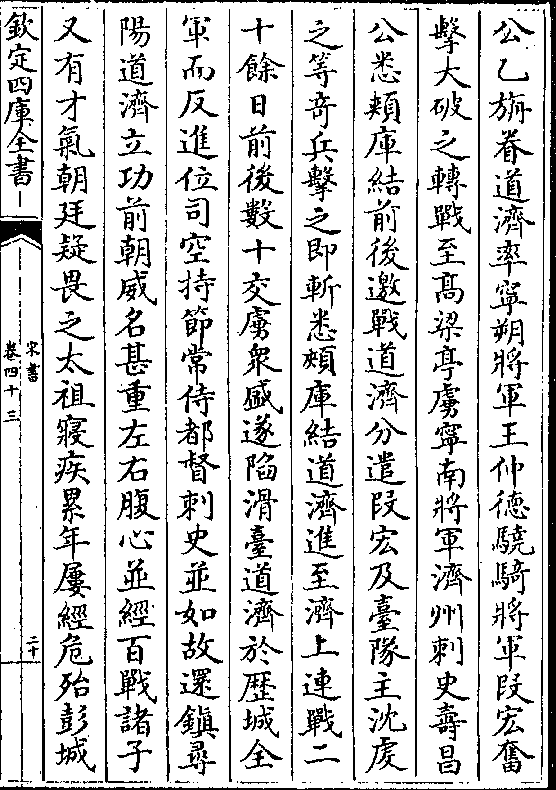 公乙旃眷道濟率寧朔將軍王仲德驍騎將軍段宏奮
擊大破之轉戰至高梁亭虜寧南將軍濟州刺史壽昌
公悉頰庫結前後邀戰道濟分遣段宏及臺隊主沈虔
之等竒兵擊之即斬悉頰庫結道濟進至濟上連戰二
十餘日前後數十交虜衆盛遂陷滑臺道濟於歴城全
軍而反進位司空持節常侍都督刺史並如故還鎮尋
陽道濟立功前朝威名甚重左右腹心並經百戰諸子
又有才氣朝廷疑畏之太祖寢疾累年屢經危殆彭城
欽定四庫全書
宋書
卷四十三
二十